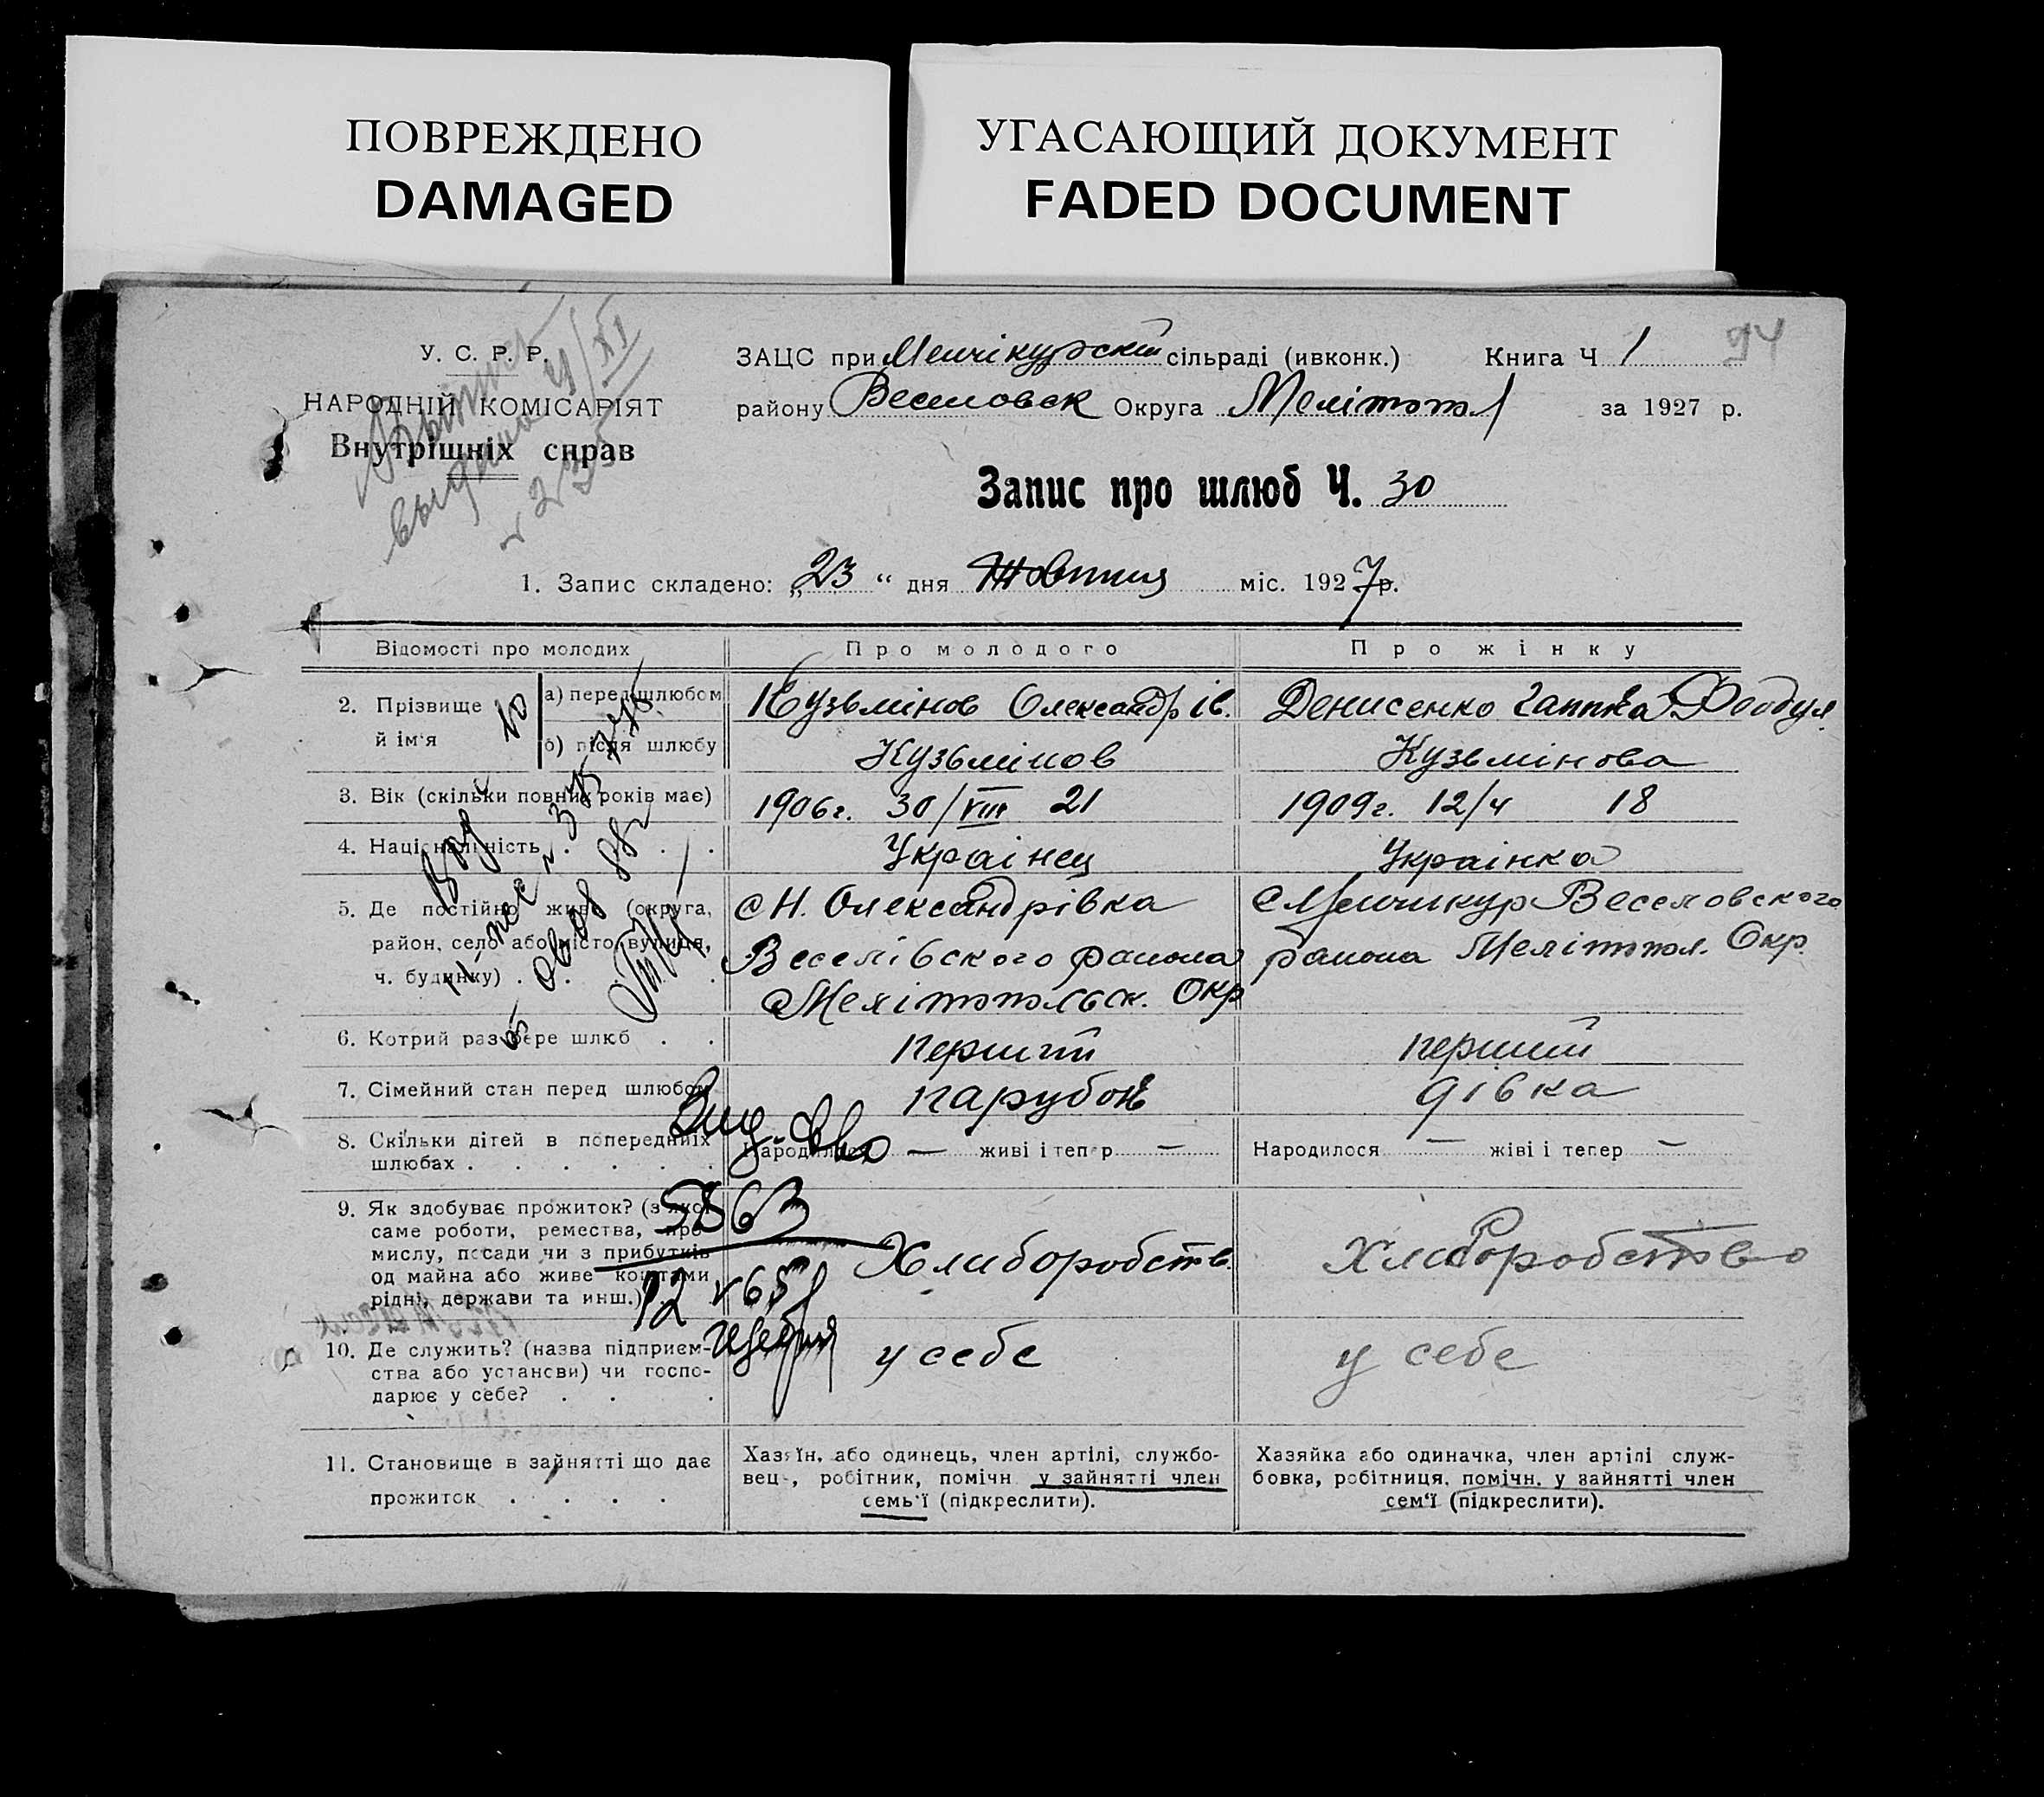 ПОВРЕЖДЕНО
DAMAGED
УГАСАЮЩИЙ ДОКУМЕНТ
FADED DOCUMENT
У. С. Р. Р.
НАРОДНІЙ КОМІСАРІЯТ
Внутрішніх справ
выдано
ЗАЦС при Менчікурскій сільраді (ивконк.) Книга Ч 1 94
району Веселовск Округа Мелітопол за 1927 р.
Запис про шлюб Ч. 30
1. Запис складено: „23" дня Жовтня міс. 1927 р.
Відомості про молодих Про молодого Про жінку
2. Прізвище й ім'я
а) перед шлюбом Кузьмінов Олександр ів. Денисенко Гаппка Феодул.
б) після шлюбу Кузьмінов Кузьмінова
3. Вік (скільки повних років має) 1906г. 30/VIII 21 1909г. 12/4 18
4. Національність . . . . Українец Українка
5. Де постійно живе (округа, район, село або місто, вулиця, ч. будинку) . . .
с Н. Олександрівка
Веселівского района
Мелітопольск. Окр
с Менчикур Веселовского
района Мелітопол. Окр.
6. Котрий раз бере шлюб . . перший перший
7. Сімейний стан перед шлюбом парубок дівка
8. Скільки дітей в попередніх шлюбах . . . . . .
Народилося — живі і тепер — Народилося — жіві і тепер —
9. Як здобуває прожиток? (з якої
саме роботи, ремества, про-
мислу, посади чи з прибутків
од майна або живе коштами
рідні, держави та инш.)
Хлиборобств. Хлиборобство
10. Де служить? (назва підприєм-
ства або установи) чи госпо-
дарює у себе? . . .
у себе у себе
11. Становище в зайнятті що дає
прожиток . . . .
Хазяїн, або одинець, член артілі, службо-
вець, робітник, помічн у зайнятті член
семь'ї (підкреслити).
Хазяйка або одиначка, член артілі служ-
бовка, робітниця, помічн. у зайнятті член
сем'ї (підкреслити).